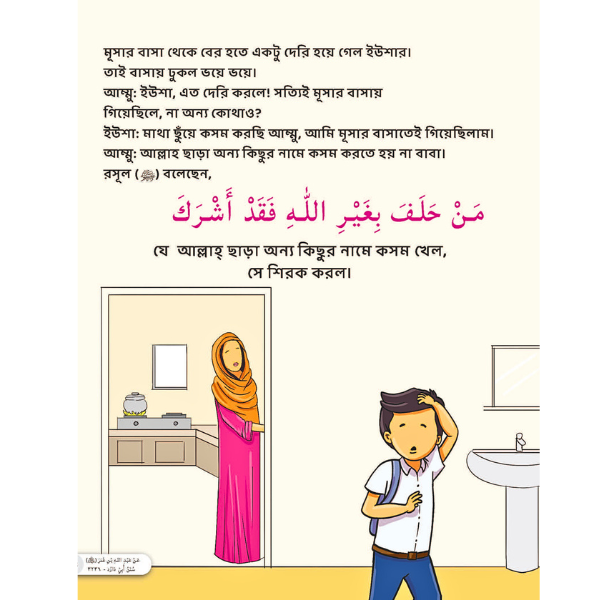 মূসার বাসা থেকে বের হতে একটু দেরি হয়ে গেল ইউশার।
তাই বাসায় ঢুকল ভয়ে ভয়ে।
আম্মু: ইউশা, এত দেরি করলে! সত্যিই মূসার বাসায়
গিয়েছিলে, না অন্য কোথাও?
ইউশা: মাথা ছুঁয়ে কসম করছি আম্মু, আমি মূসার বাসাতেই গিয়েছিলাম।
আম্মু: আল্লাহ ছাড়া অন্য কিছুর নামে কসম করতে হয় না বাবা।
রসূল (ﷺ) বলেছেন,
مَنْ حَلَفَ بِغَيْرِ اللّٰهِ فَقَدْ أَشْرَكَ
যে আল্লাহ্ ছাড়া অন্য কিছুর নামে কসম খেল,
সে শিরক করল।